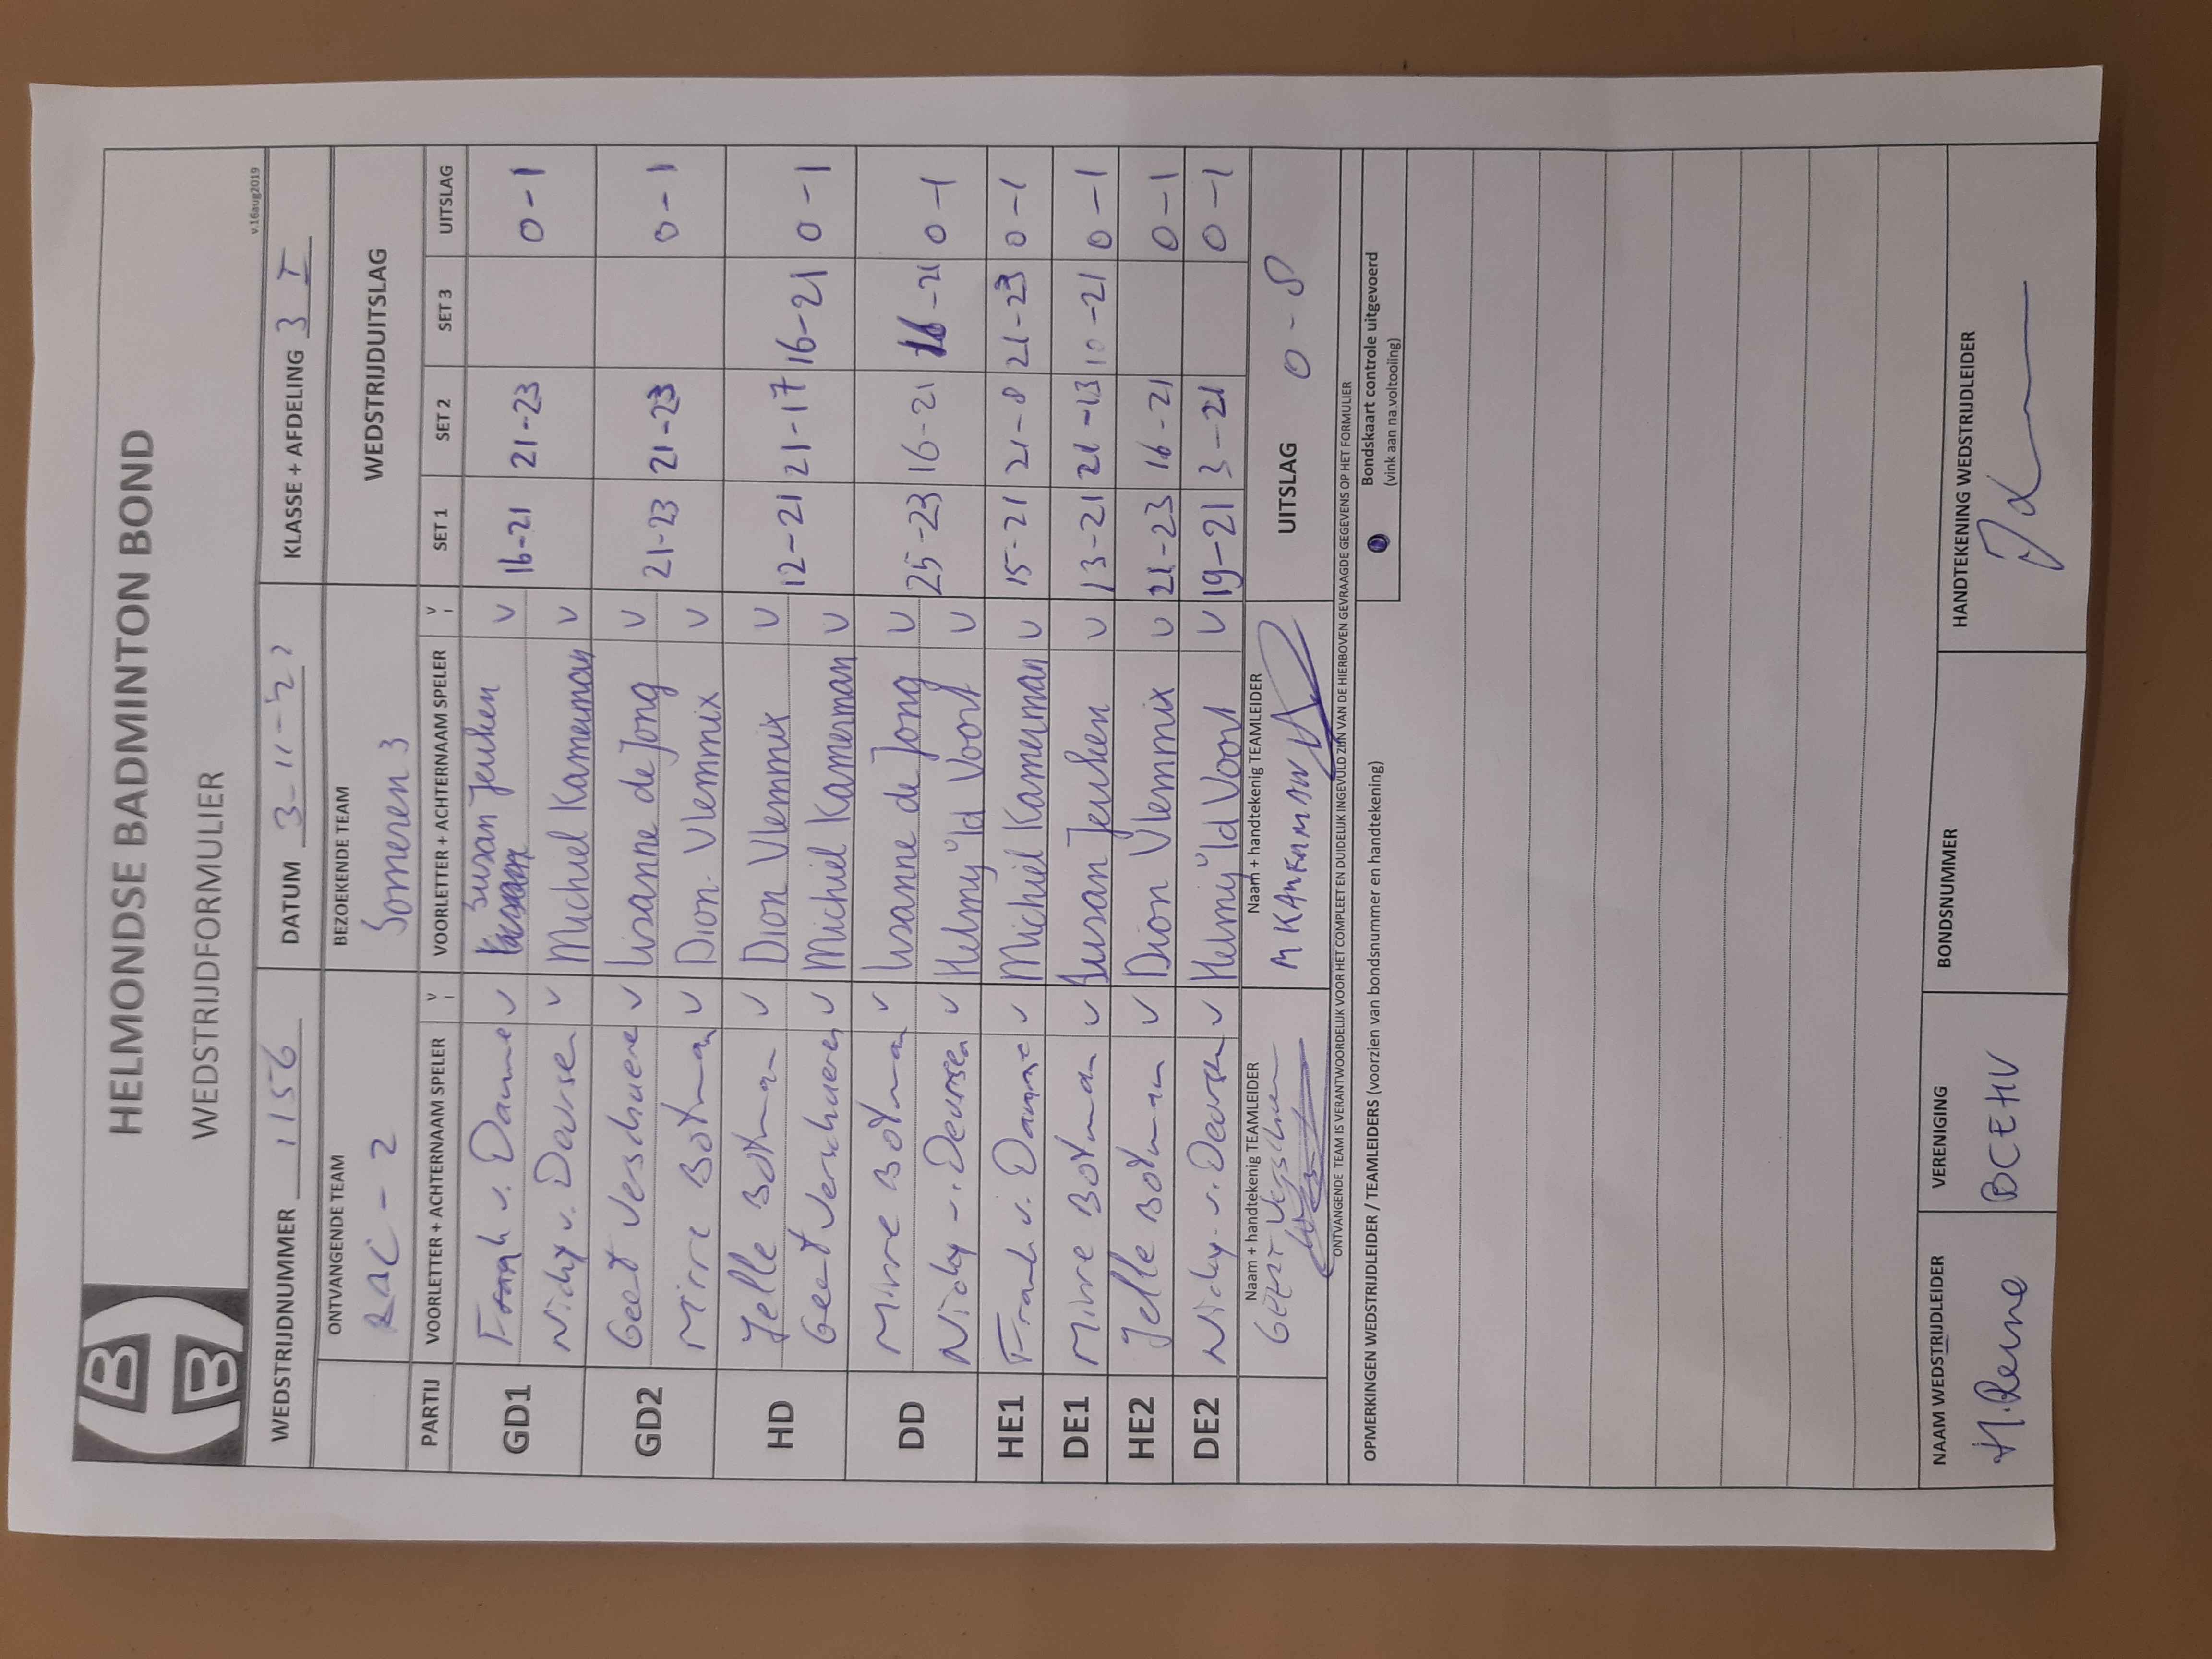 HELMONDSE BADMINTON BOND
WEDSTRIJDFORMULIER
v.16aug2019
WEDSTRIJDNUMMER 1156 DATUM 3-11-22 KLASSE + AFDELING 3 I
ONTVANGENDE TEAM BEZOEKENDE TEAM WEDSTRIJDUITSLAG
BAC - 2 Someren 3
PARTIJ VOORLETTER + ACHTERNAAM SPELER V VOORLETTER + ACHTERNAAM SPELER V SET 1 SET 2 SET 3 UITSLAG
GD1 Frank v. Damme v Susan Jeuken v 16-21 21-23 0-1
Nicky v. Deursen v Michiel Kamerman v
GD2 Geert Verschueren v Lisanne de Jong v 21-23 21-23 0-1
Mirre Botman v Dion Vlemmix v
HD Jelle Botman v Dion Vlemmix v 12-21 21-17 16-21 0-1
Geert Verschueren v Michiel Kamerman v
DD Mirre Botman v Lisanne de Jong v 25-23 16-21 16-21 0-1
Nicky v. Deursen v Helmy vld Voort v
HE1 Frank v. Damme v Michiel Kamerman v 15-21 21-8 21-23 0-1
DE1 Mirre Botman v Susan Jeuken v 13-21 21-13 10-21 0-1
HE2 Jelle Botman v Dion Vlemmix v 21-23 16-21 0-1
DE2 Nicky v. Deursen v Helmy vld Voort v 19-21 3-21 0-1
Naam + handtekenig TEAMLEIDER Naam + handtekenig TEAMLEIDER UITSLAG 0-8
M KAMERMAN
ONTVANGENDE TEAM IS VERANTWOORDELIJK VOOR HET COMPLEET EN DUIDELIJK INGEVULD ZIJN VAN DE HIERBOVEN GEVRAAGDE GEGEVENS OP HET FORMULIER
OPMERKINGEN WEDSTRIJDLEIDER / TEAMLEIDERS (voorzien van bondsnummer en handtekening)
Bondskaart controle uitgevoerd
(vink aan na voltooiing)
NAAM WEDSTRIJDLEIDER VERENIGING BONDSNUMMER HANDTEKENING WEDSTRIJDLEIDER
BCEHV